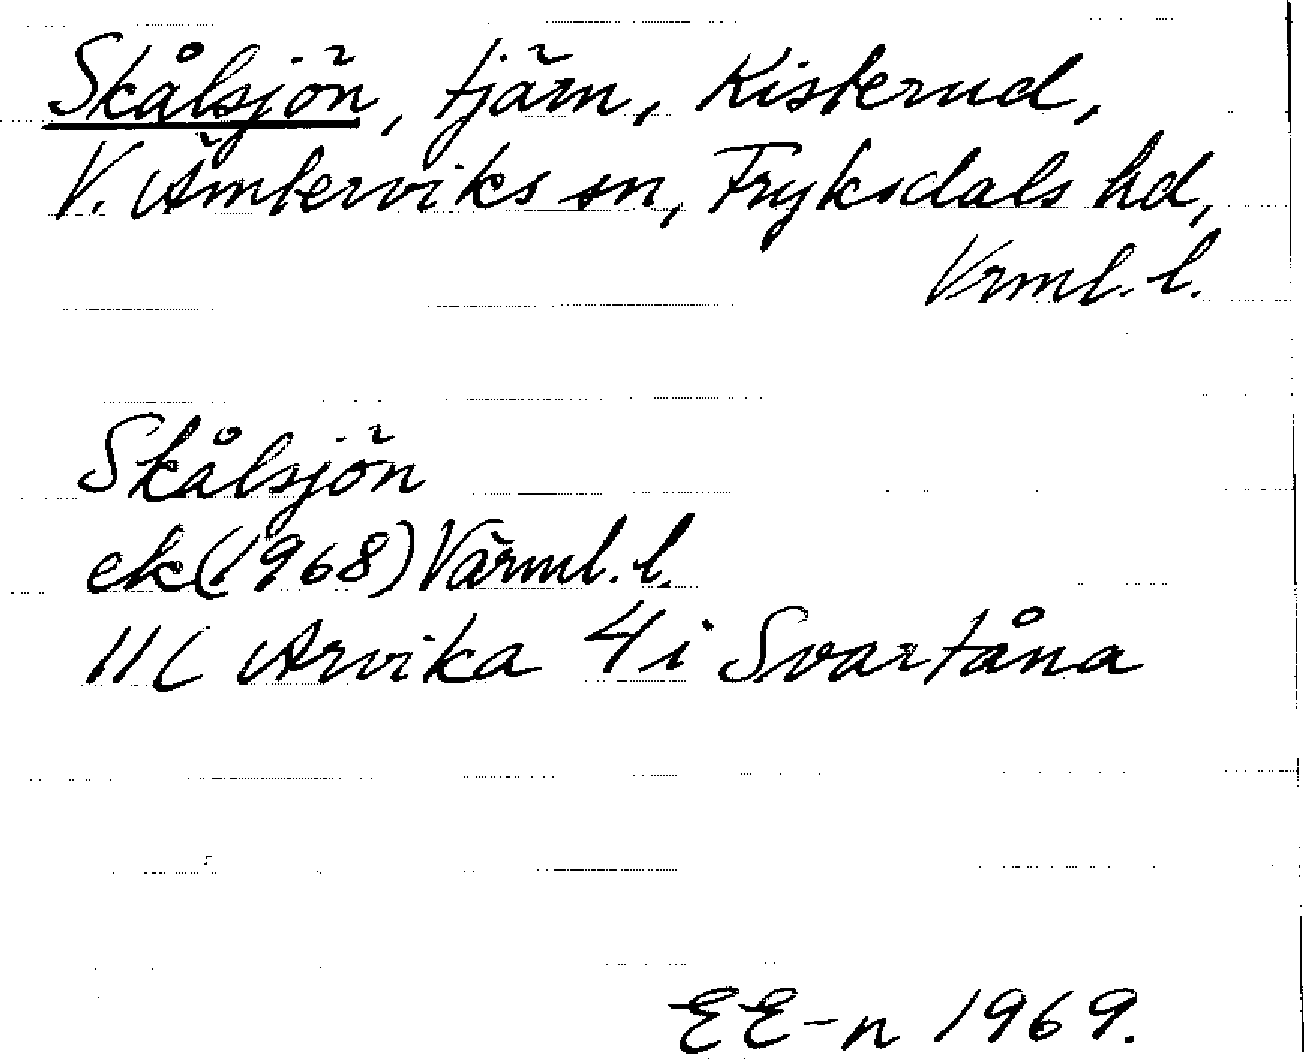 Skålsjön, tjärn, Kisterud,
V. Ämterviks sn, Fryksdals hd,
Vrml. l.
Skålsjön
ek(1968) Värml. l.
11C Arvika 4i Svartåna
EE-n 1969.